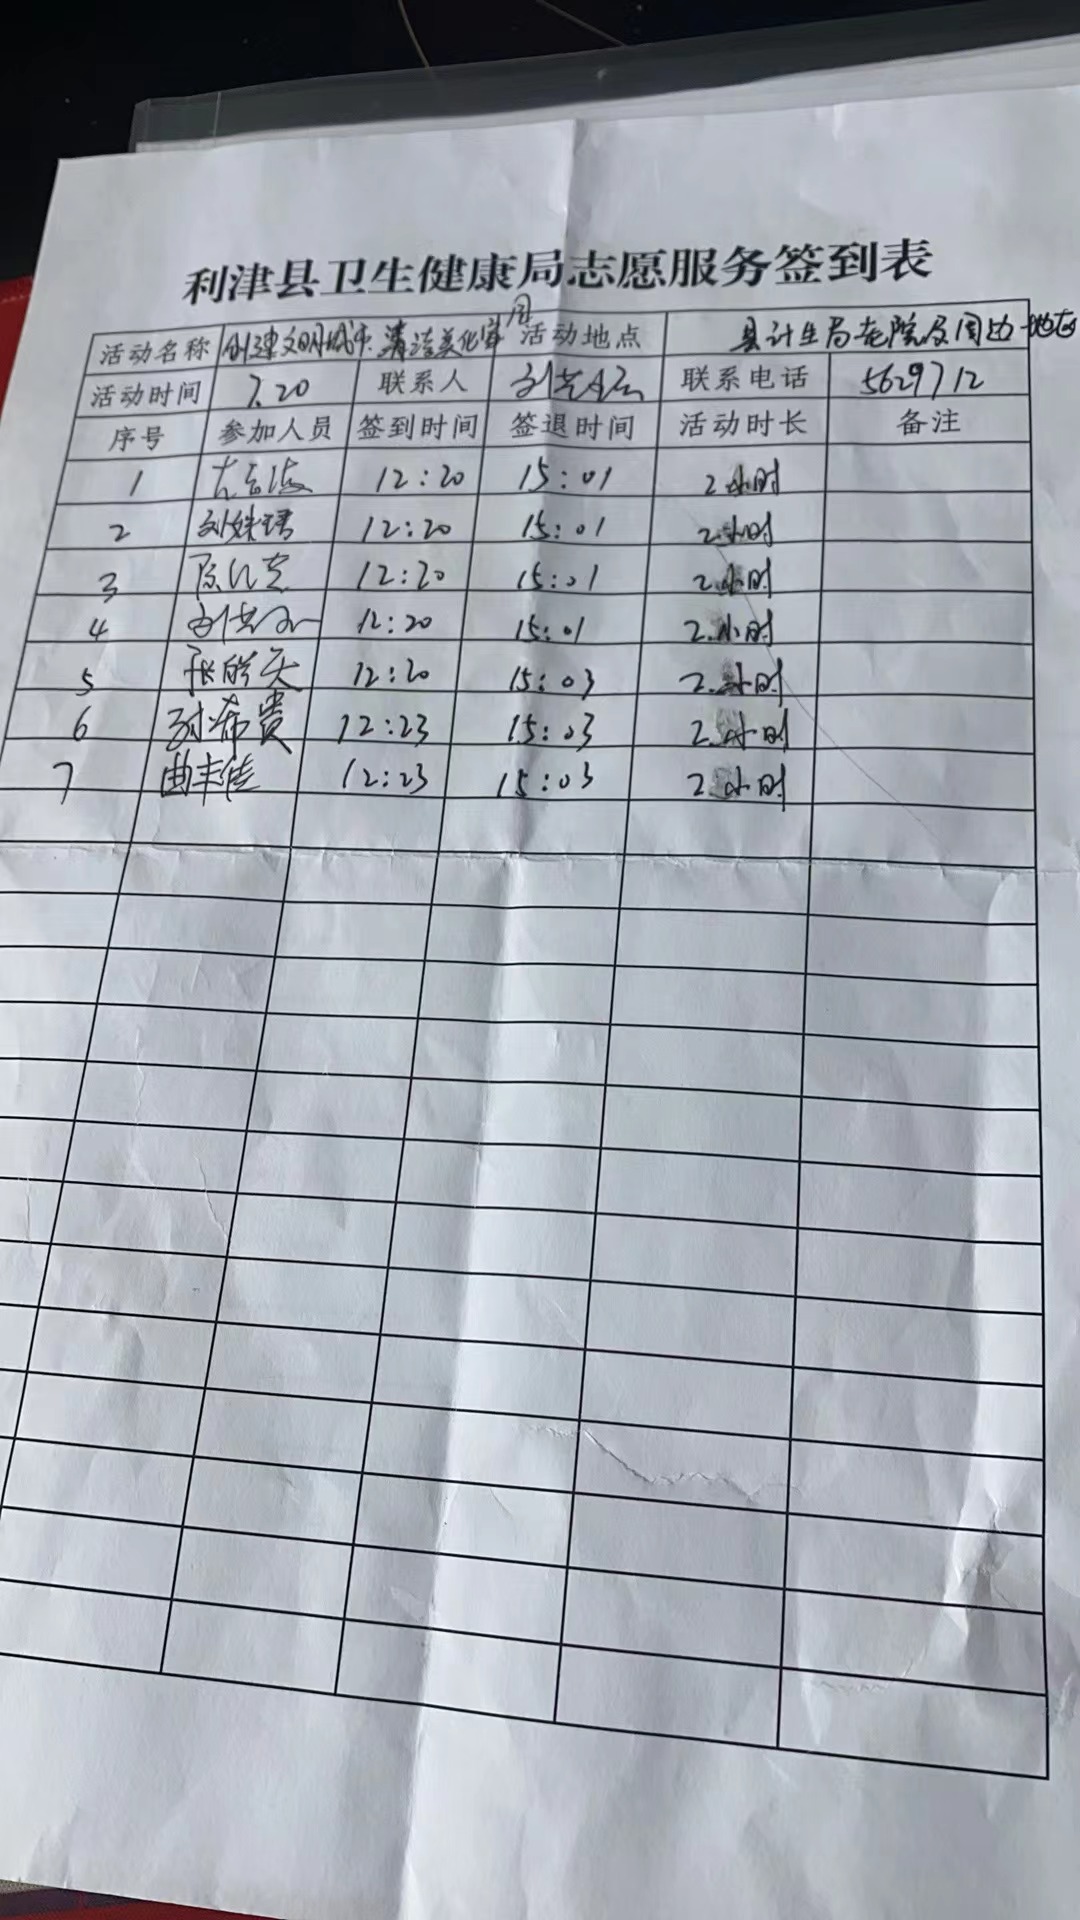 利津县卫生健康局志愿服务签到表
活动名称 创建文明城市.清洁美化家园 活动地点 县计生局老院及周边地带
活动时间 7.20 联系人 联系电话 5629712
序号 参加人员 签到时间 签退时间 活动时长 备注
1 12:20 15:01 2小时
2 12:20 15:01 2.小时
3 12:20 15:01 2.小时
4 12:20 15:01 2.小时
5 12:20 15:03 2.小时
6 12:23 15:03 2.小时
7 曲丰佳 12:23 15:03 2.小时